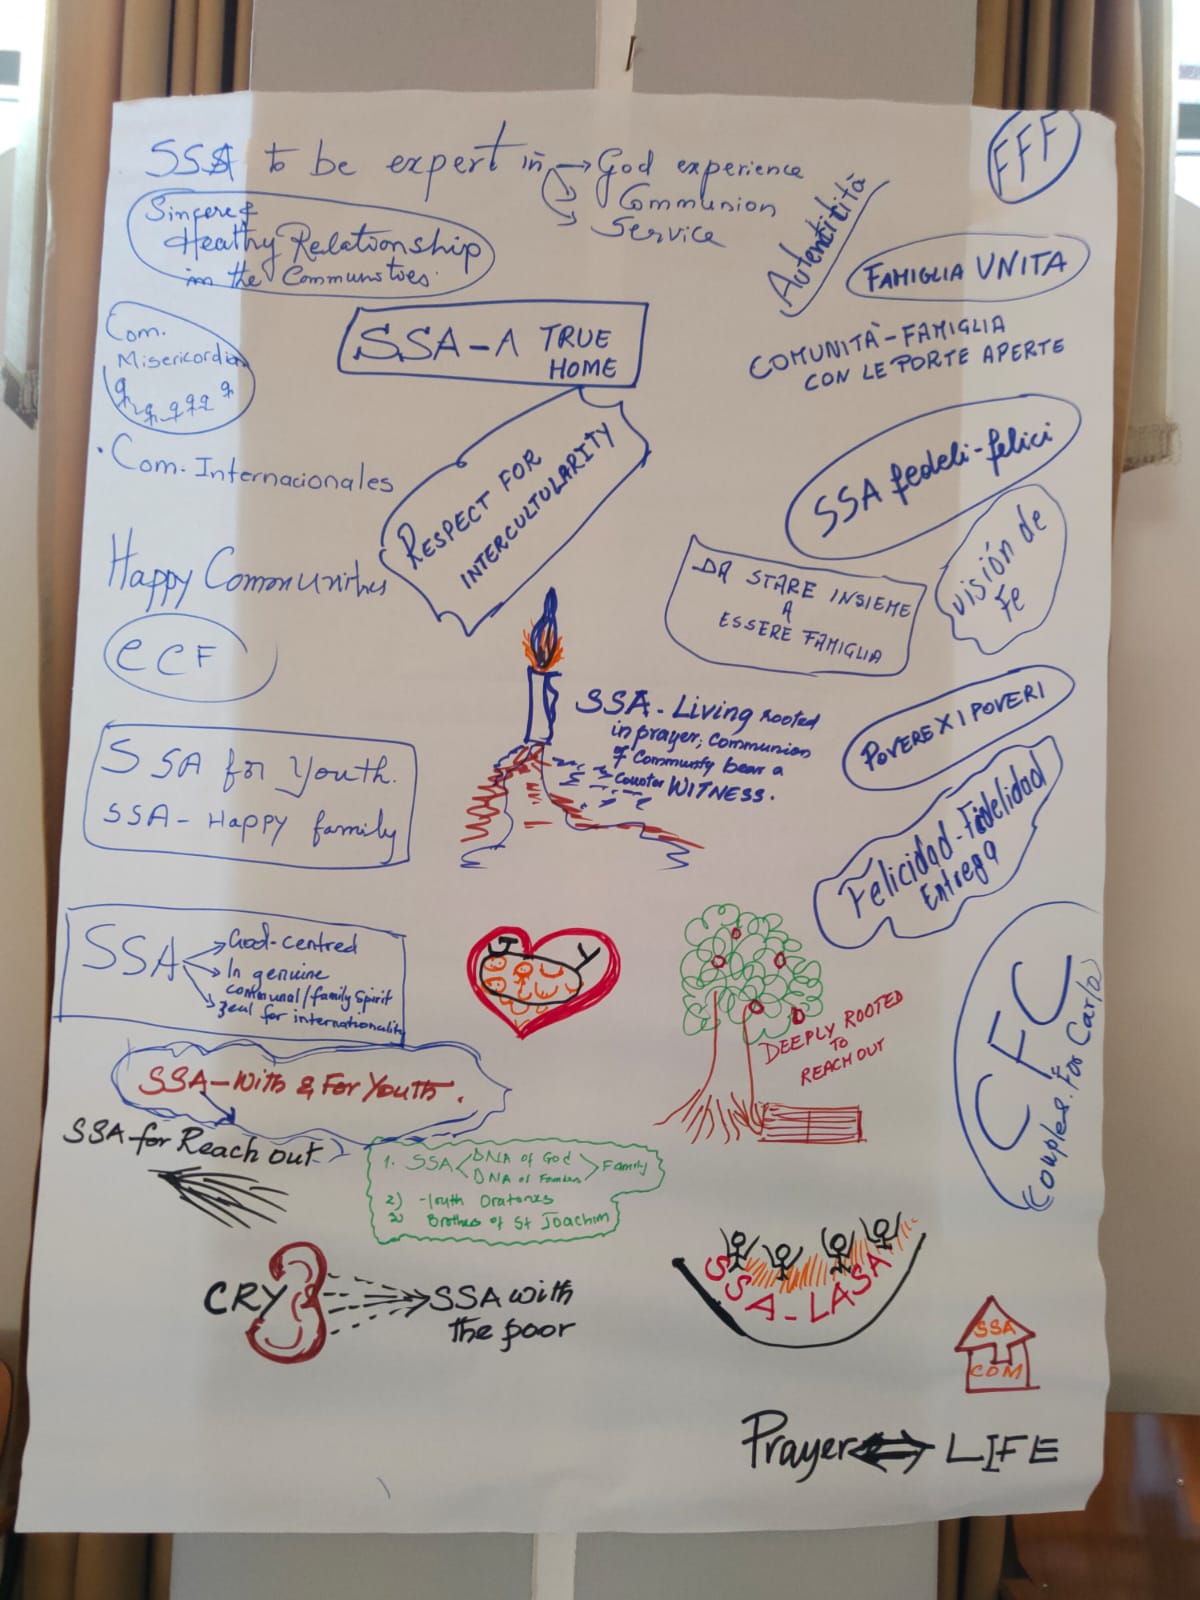 SSA to be expert in → God experience
Communion
Service
FFF
Sincere &
Healthy Relationship
in the Communities.
Autenticità
FAMIGLIA UNITA
Com.
Misericordia
SSA - A TRUE
HOME
COMUNITÀ - FAMIGLIA
CON LE PORTE APERTE
• Com. Internacionales
RESPECT FOR
INTERCULTULARITY
SSA fedeli - felici
visión de
Fe
Happy Communities
DA STARE INSIEME
A
ESSERE FAMIGLIA
CCF
SSA - Living rooted
in prayer, communion
of Community bear a
Counter WITNESS.
POVERE X I POVERI
SSA for Youth.
SSA - Happy family
Felicidad - Fidelidad
Entrega
SSA → God-centred
→ In genuine
communal/family spirit
→ zeal for internationality
J Y
DEEPLY ROOTED
TO
REACH OUT
CFC
(Couples. For Carlo)
SSA - With & For Youth.
SSA for Reach out
1. SSA < DNA of God
DNA of Founders > Family
2) Youth Oratories
3) Brothers of St Joachim
CRY
SSA with
the poor
SSA - LASA
SSA
COM
Prayer ⇔ LIFE